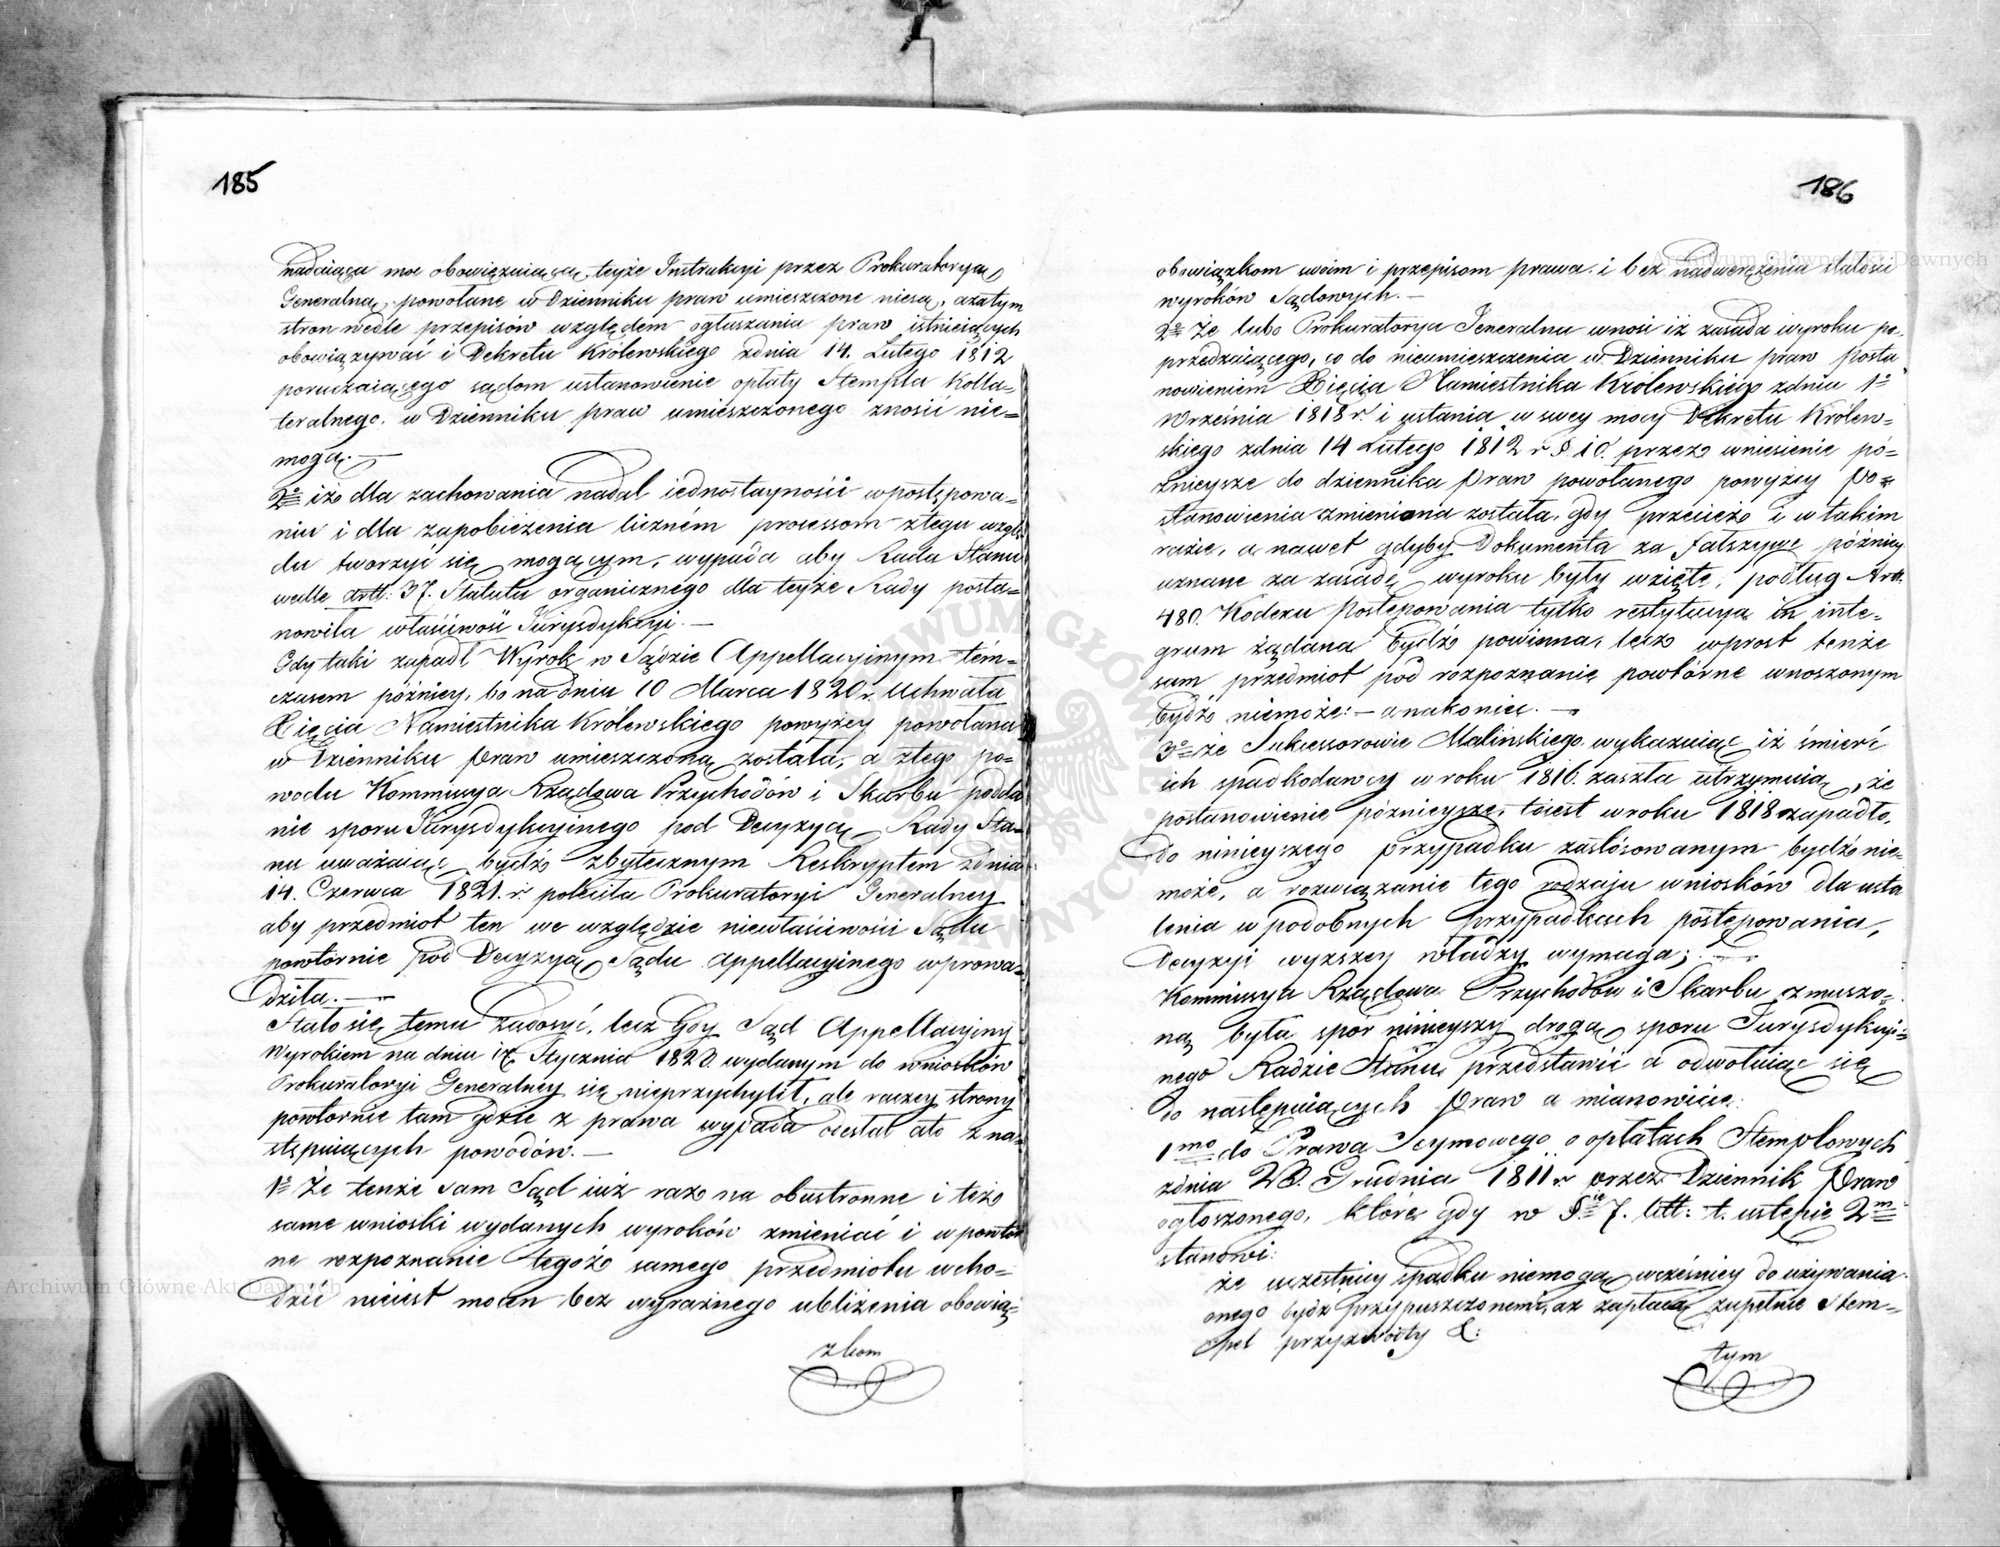 185
nadaiąca moc obowięzuiącą, teyże Instrukcyi przez Prokuratoryą
Generalną, powołane w Dzienniku praw umieszczone niesą, azatym
stron wedle przepisów względem ogłaszania praw istnieiących
obowiązywać i Dekretu Królewskiego zdnia 14. Lutego 1812
poruczaiącego sądom ustanowienie opłaty Stempla Kolla=
teralnego, w Dzienniku praw umieszczonego znosić nie=
mogą.—
2o iżo dla zachowania nadal iednostayności wpostępowa=
niu i dla zapobieżenia liczném processom ztego wzglę
du tworzyć się mogącym, wypada aby Rada Stanu
wedle artt: 37. Statutu organicznego dla teyże Rady posta=
nowiła właściwość Jurysdykcyi.—
Gdy taki zapadł Wyrok w Sądzie Appellacyinym tém=
czasem pózniey, bo na dniu 10 Marca 1820 r. Uchwała
Xięcia Namiestnika Królewskiego powyżey powołana
w Dzienniku Praw umieszczoną została, a ztego po=
wodu Kommissya Rządowa Przychodów i Skarbu podda
nie sporu Jurysdykcyinego pod Decyzyą Rady Sta=
nu uważaiąc bydź zbytecznym Reskryptem zdnia
14. Czerwca 1821. r. poleciła Prokuratoryi Generalney
aby przedmiot ten we względzie niewłaściwości Sądu
powtórnie pod Decyzyą Sądu Appellacyinego wprowa=
dziła.—
Stało się temu zadosyć, lecz Gdy Sąd Appellacyiny
Wyrokiem na dniu Stycznia 1823. wydanym do wniosków
Prokuratoryi Generalney się nieprzychylił, ale raczey strony
powtórnie tam gdzie z prawa wypada odesłał ato z na=
stępuiących powodów.—
1o Że tenże sam Sąd iuż raz na obustronne i też
same wnioski wydanych wyroków zmieniać i w powtór
ne rozpoznanie tegoż samego przedmiotu wcho=
dzić nieiest mocen bez wyraźnego ubliżenia obowią=
zkom
186
obowiązkom swoim i przepisom prawa, i bez nadwerężenia stałości
wyroków Sądowych.—
2o Że lubo Prokuratorya Jeneralna wnosi iż zasada wyroku po=
przedzaiącego, co do nieumieszczenia w Dzienniku praw Posta
nowieniem Xięcia Namiestnika Królewskiego zdnia 1o
Września 1818 r. i ustania w swey mocy Dekretu Królew=
skiego zdnia 14 Lutego 1812 r § 10. przez wniesienie pó=
źnieysze do dziennika Praw powołanego powyżey Po=
stanowienia zmieniona została, gdy przecież i w takim
razie, a nawet gdyby Dokumenta za fałszywe pózniey
uznane za zasadę wyroku były wzięte, podług Artt.
480. Kodexu Postępowania tylko restytucya in inte=
grum żądana bydź powinna, lecz wprost tenże
sam przedmiot pod rozpoznanie powtórne wnoszonym
bydź niemoże:— anakoniec.—
3o że Sukcessorowie Malinskiego wykazuiąc iż śmierć
ich spadkodawcy w roku 1816. zaszła utrzymuią, że
postanowienie póznieysze, toiest w roku 1818 zapadło,
do ninieyszego przypadku zastósowanym bydź nie=
może, a rozwiązanie tego rodzaju wniosków dla usta
lenia w podobnych przypadkach postępowania,
Decyzyi wyższey władzy wymaga;—
Kommissya Rządowa Przychodów i Skarbu zmuszo=
ną była spor ninieyszy drogą sporu Jurysdykcyi=
nego Radzie Stanu przedstawić a odwołuiąc się
do następuiących Praw a mianowicie:
1mo do Prawa Seymowego o opłatach Stemplowych
zdnia 23. Grudnia 1811 r. przez Dziennik Praw
ogłoszonego, które gdy w §ie 7. litt: t. ustępie 2m
stanowi:
że uczestnicy spadku niemogą wcześniey do używania
onego bydź przypuszczonemi, aż zapłacą zupełnie Stem=
pel przyzwoity &:
tym
Archiwum Główne Akt Dawnych
Archiwum Główne Akt Dawnych